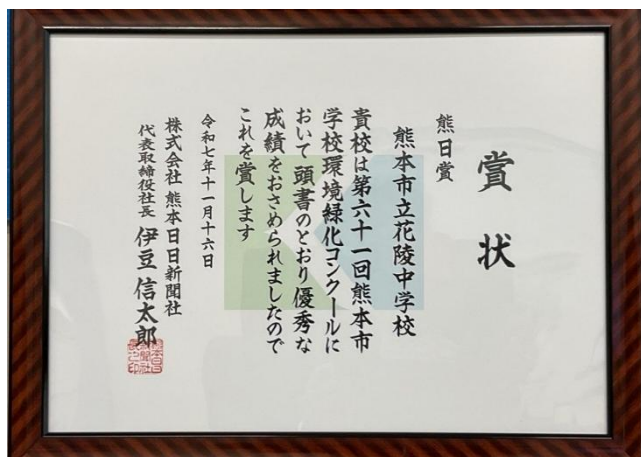 賞状
熊日賞
熊本市立花陵中学校
貴校は第六十一回熊本市
学校環境緑化コンクールに
おいて頭書のとおり優秀な
成績をおさめられましたので
これを賞します
令和七年十一月十六日
株式会社 熊本日日新聞社
代表取締役社長 伊豆 信太郎